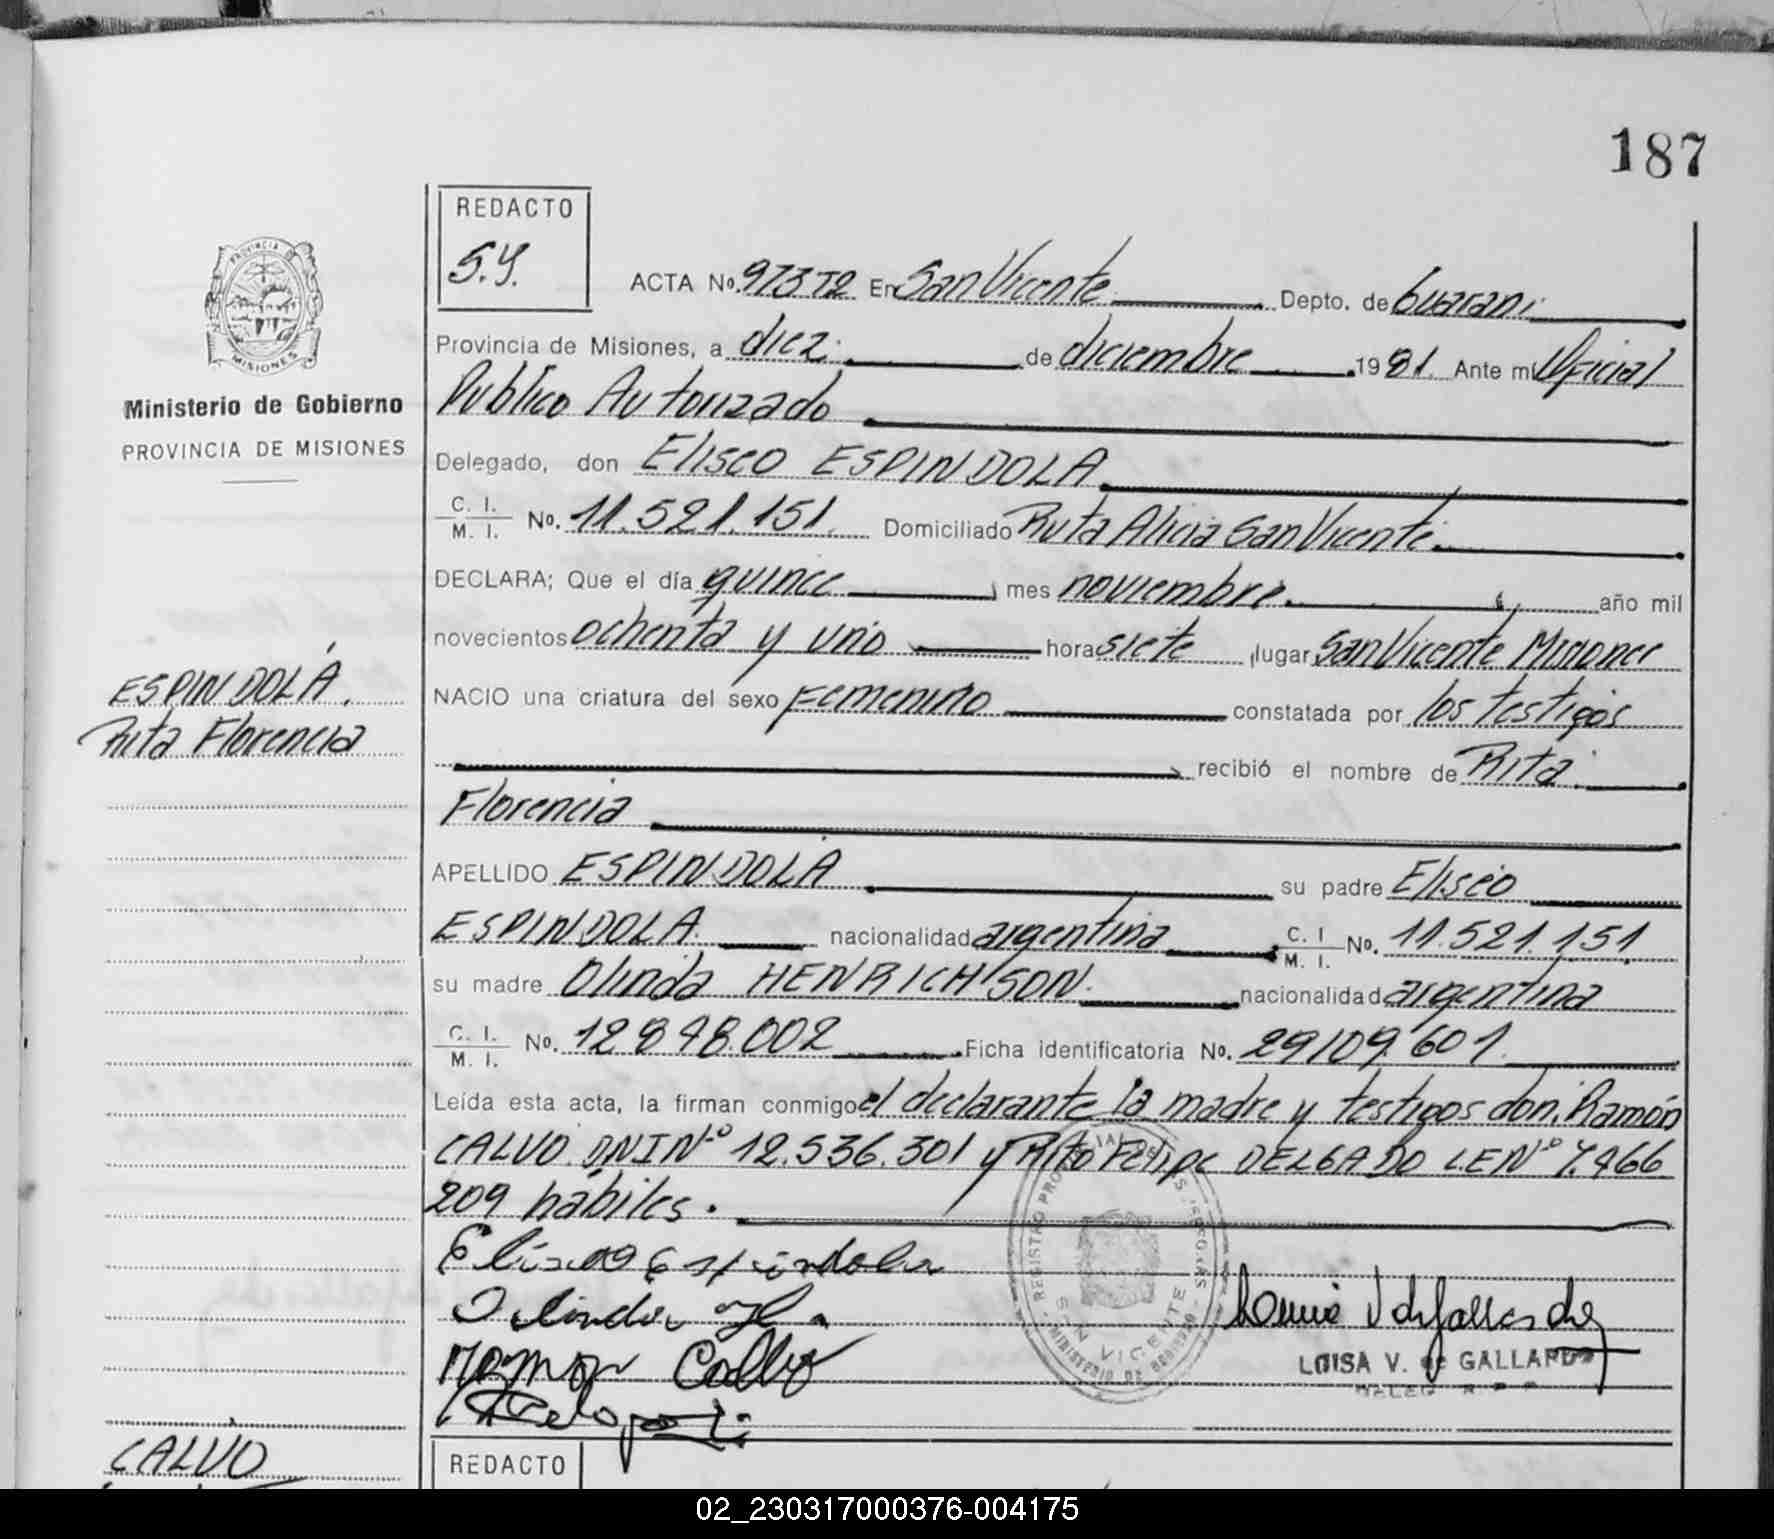 187
REDACTO
S.Y.
ACTA No. 97372 En San Vicente Depto. de Guarani
Provincia de Misiones, a diez de diciembre 1981. Ante mi Oficial
Publico Autorizado
Delegado, don Eliseo ESPINDOLA
C. I. M. I. No. 11.521.151 Domiciliado Ruta Alicia San Vicente
DECLARA; Que el día quince, mes noviembre, año mil
novecientos ochenta y uno hora siete, lugar San Vicente Misiones
NACIO una criatura del sexo femenino constatada por los testigos
recibió el nombre de Rita
Florencia
APELLIDO ESPINDOLA su padre Eliseo
ESPINDOLA nacionalidad argentina C. I. M. I. No. 11.521.151
su madre Olinda HENRICHSON nacionalidad argentina
C. I. M. I. No. 12.848.002 Ficha identificatoria No. 29109.601
Leída esta acta, la firman conmigo el declarante la madre y testigos don. Ramón
CALVO DNI Nº 12.536.301 y Rito Felipe DELGADO L.E Nº 7.466
209 hábiles.
Eliseo Espindola
Olinda H
Ramon Calvo
LUISA V. de GALLARDO
PROVINCIA DE
MISIONES
Ministerio de Gobierno
PROVINCIA DE MISIONES
ESPINDOLA.
Rita Florencia
CALVO
REDACTO
02_230317000376-004175